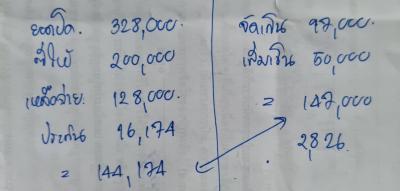 ยอดปิด. 328,000.
ตีให้ 200,000
เหลือจ่าย. 128,000.
ประกัน 16,174
= 144,174
จัดเงิน 97,000.
เพิ่มเงิน 50,000
= 147,000
2,826.